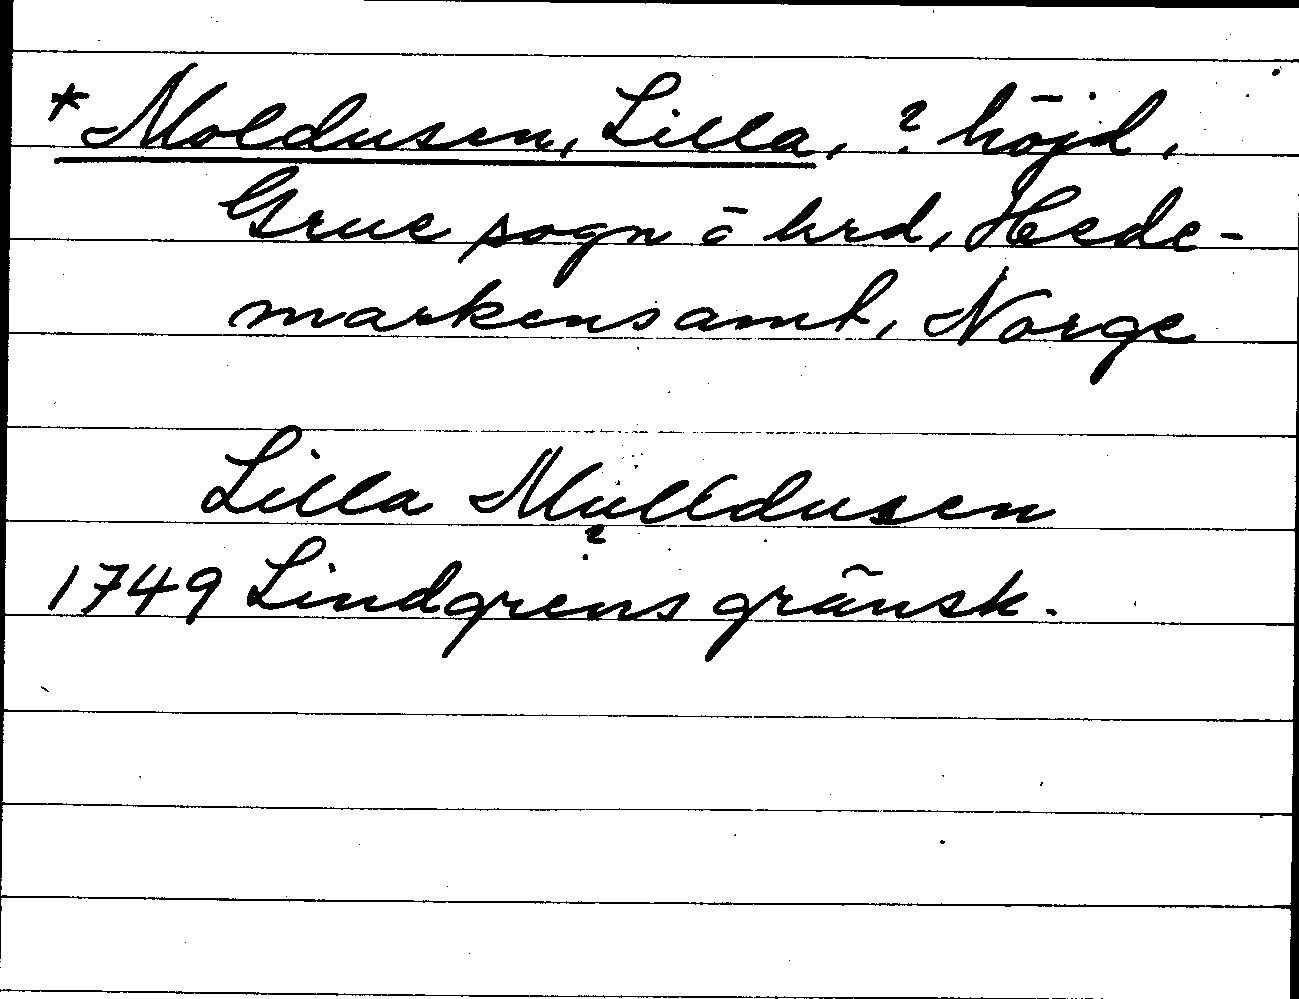 *Moldusen, Lilla, ? höjd,
Grue sogn o hrd, Hede-
markens amt, Norge
Lilla Mulldusen
?
1749 Lindgrens gränsk.